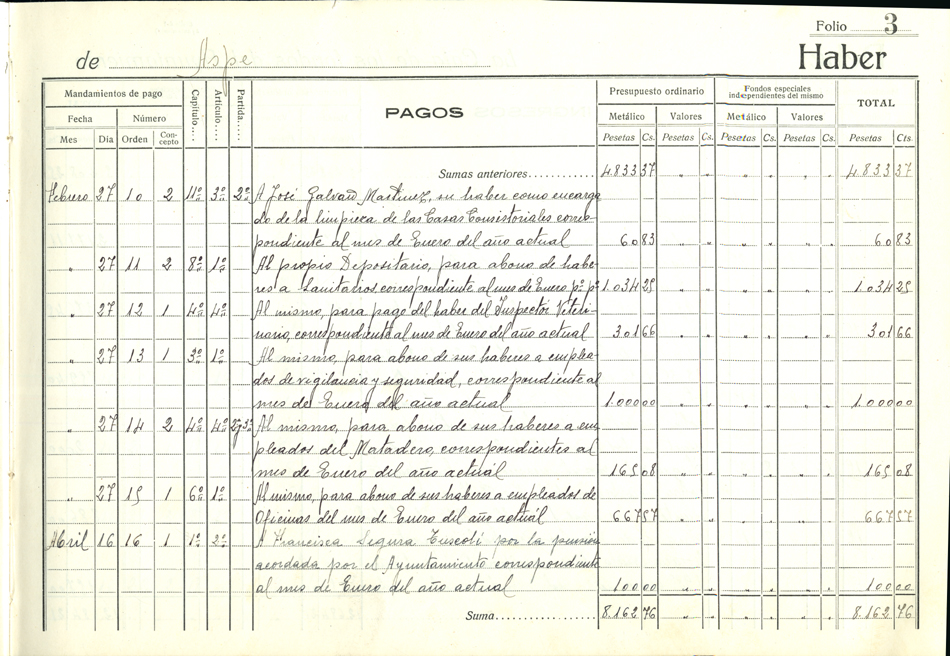 Folio 3
de Aspe Haber
Mandamientos de pago Capítulo.... Artículo.... Partida..... PAGOS Presupuesto ordinario Fondos especiales independientes del mismo TOTAL
Fecha Número Metálico Valores Metálico Valores
Mes Dia Orden Concepto Pesetas Cs. Pesetas Cs. Pesetas Cs. Pesetas Cs. Pesetas Cts.
Sumas anteriores............ 4.833 37 " " " " " " 4.833 37
Febrero 27 10 2 11º 3º 2ª A José Galvañ Martinez, su haber como encarga
do de la limpieza de las Casas Consistoriales corres-
pondiente al mes de Enero del año actual 60 83 " " " " " " 60 83
" 27 11 2 8º 1º Al propio Depositario, para abono de habe-
res a Sanitarios, correspondiente al mes de Enero pº pº 1.034 25 " " " " " " 1.034 25
" 27 12 1 4º 4º Al mismo, para pago del haber del Inspector Veteri-
nario, correspondiente al mes de Enero del año actual 301 66 " " " " " " 301 66
" 27 13 1 3º 1º Al mismo, para abono de sus haberes a emplea-
dos de vigilancia y seguridad, correspondiente al
mes de Enero del año actual 1.000 00 " " " " " " 1.000 00
" 27 14 2 4º 4º 2ª y 3ª Al mismo, para abono de sus haberes a em
pleados del Matadero, correspondientes al
mes de Enero del año actual 165 08 " " " " " " 165 08
" 27 15 1 6º 1º Al mismo, para abono de sus haberes a empleados de
Oficinas del mes de Enero del año actuál 667 57 " " " " " " 667 57
Abril 16 16 1 1º 2º A Francisca Segura por la pension
acordada por el Ayuntamiento correspondiente
al mes de Enero del año actual 100 00 " " " " " " 100 00
Suma................. 8.162 76 " " " " " " 8.162 76